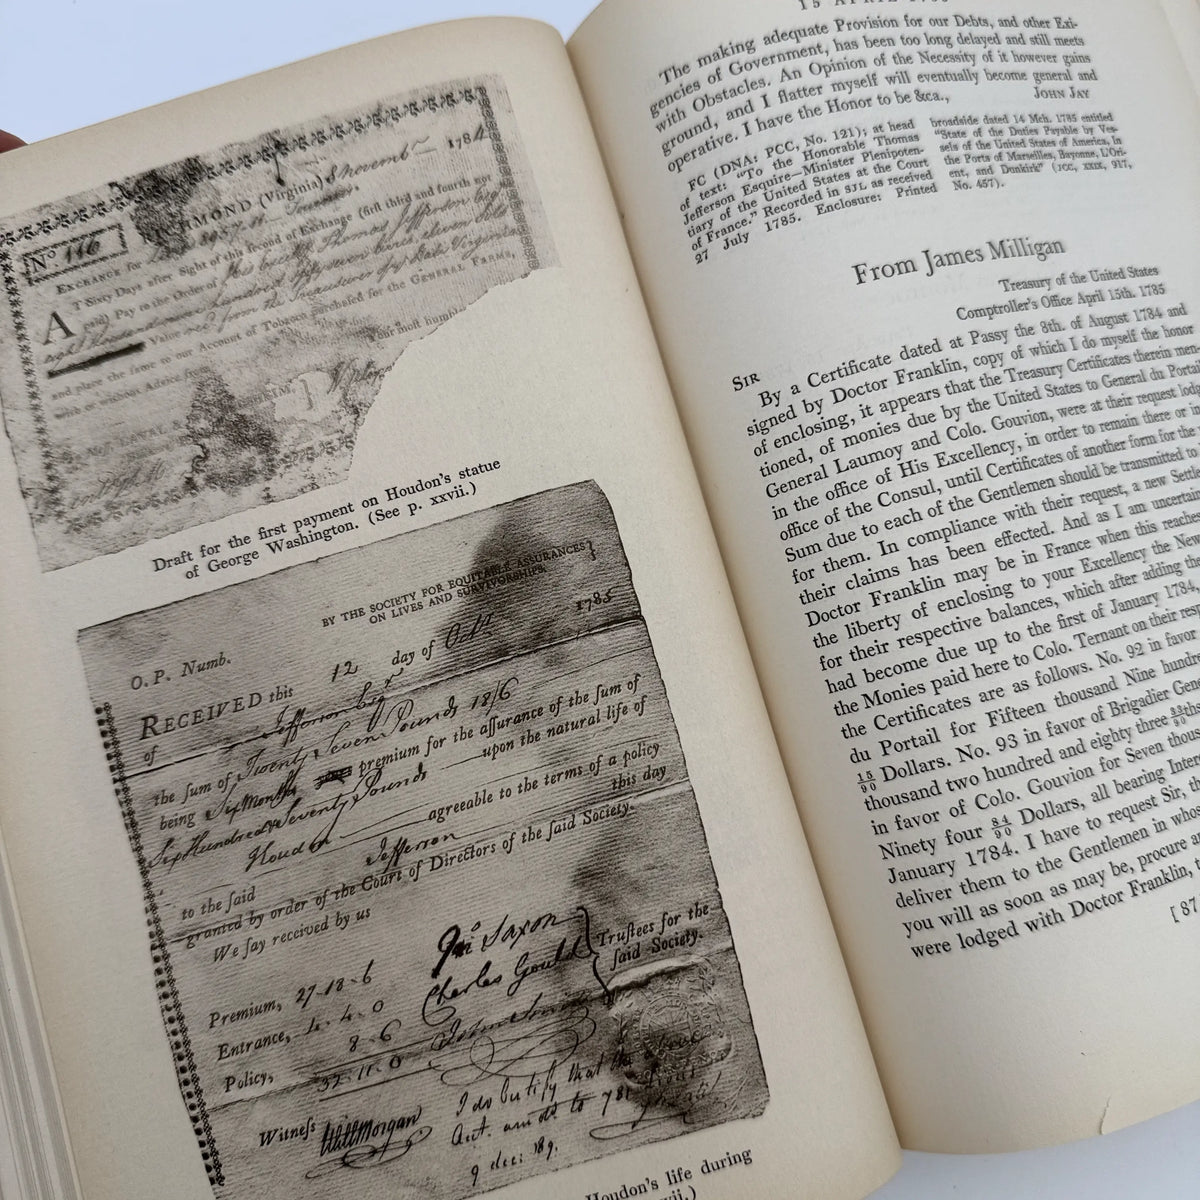 Nº 116
MOND (Virginia) 8 Novemb 1784
EXCHANGE for
AT Sixty Days after Sight of this second of Exchange (first third and fourth not
paid) Pay to the Order of Thomas Jefferson Esqr
Value received from the Treasurer of the State Virginia
and place the same to our Account of Tobacco purchased for the GENERAL FARMS,
with or without Advice from
Your most humble
Draft for the first payment on Houdon's statue
of George Washington. (See p. xxvii.)
BY THE SOCIETY FOR EQUITABLE ASSURANCES
ON LIVES AND SURVIVORSHIPS.
O.P. Numb.
RECEIVED this 12 day of Octr 1785
of Jefferson Esqr
the sum of Twenty Seven Pounds 18/6
being Six Months premium for the assurance of the sum of
Six Hundred & Seventy Pounds upon the natural life of
Houdon agreeable to the terms of a policy
to the said Jefferson this day
granted by order of the Court of Directors of the said Society.
We say received by us
Jno Saxon
Charles Gould
Trustees for the
said Society.
Premium, 27-18-6
Entrance, 4-4-0
Policy, 8-6
32-11-0
Witness Will Morgan
I do Certify that the above
9 dec: 189.
Houdon's life during
vii.)
15 APRIL 1785
The making adequate Provision for our Debts, and other Exi-
gencies of Government, has been too long delayed and still meets
with Obstacles. An Opinion of the Necessity of it however gains
ground, and I flatter myself will eventually become general and
operative. I have the Honor to be &ca.,
JOHN JAY
FC (DNA: PCC, No. 121); at head
of text: "To the Honorable Thomas
Jefferson Esquire—Minister Plenipoten-
tiary of the United States at the Court
of France." Recorded in SJL as received
27 July 1785. Enclosure: Printed
broadside dated 14 Mch. 1785 entitled
"State of the Duties Payable by Ves-
sels of the United States of America, in
the Ports of Marseilles, Bayonne, L'Ori-
ent, and Dunkirk" (JCC, XXIX, 917,
No. 457).
From James Milligan
Treasury of the United States
Comptroller's Office April 15th. 1785
SIR
By a Certificate dated at Passy the 8th. of August 1784 and
signed by Doctor Franklin, copy of which I do myself the honor
of enclosing, it appears that the Treasury Certificates therein men-
tioned, of monies due by the United States to General du Portail
General Laumoy and Colo. Gouvion, were at their request lodg
in the office of His Excellency, in order to remain there or in
office of the Consul, until Certificates of another form for the
Sum due to each of the Gentlemen should be transmitted to
for them. In compliance with their request, a new Settle
their claims has been effected. And as I am uncertain
Doctor Franklin may be in France when this reaches
the liberty of enclosing to your Excellency the New
for their respective balances, which after adding the
had become due up to the first of January 1784
the Monies paid here to Colo. Ternant on their resp
the Certificates are as follows. No. 92 in favor
du Portail for Fifteen thousand Nine hundre
15/90 Dollars. No. 93 in favor of Brigadier Gene
thousand two hundred and eighty three 88/90ths
in favor of Colo. Gouvion for Seven thous
Ninety four 84/90 Dollars, all bearing Inter
January 1784. I have to request Sir, th
deliver them to the Gentlemen in whos
you will as soon as may be, procure a
were lodged with Doctor Franklin, t
[ 87